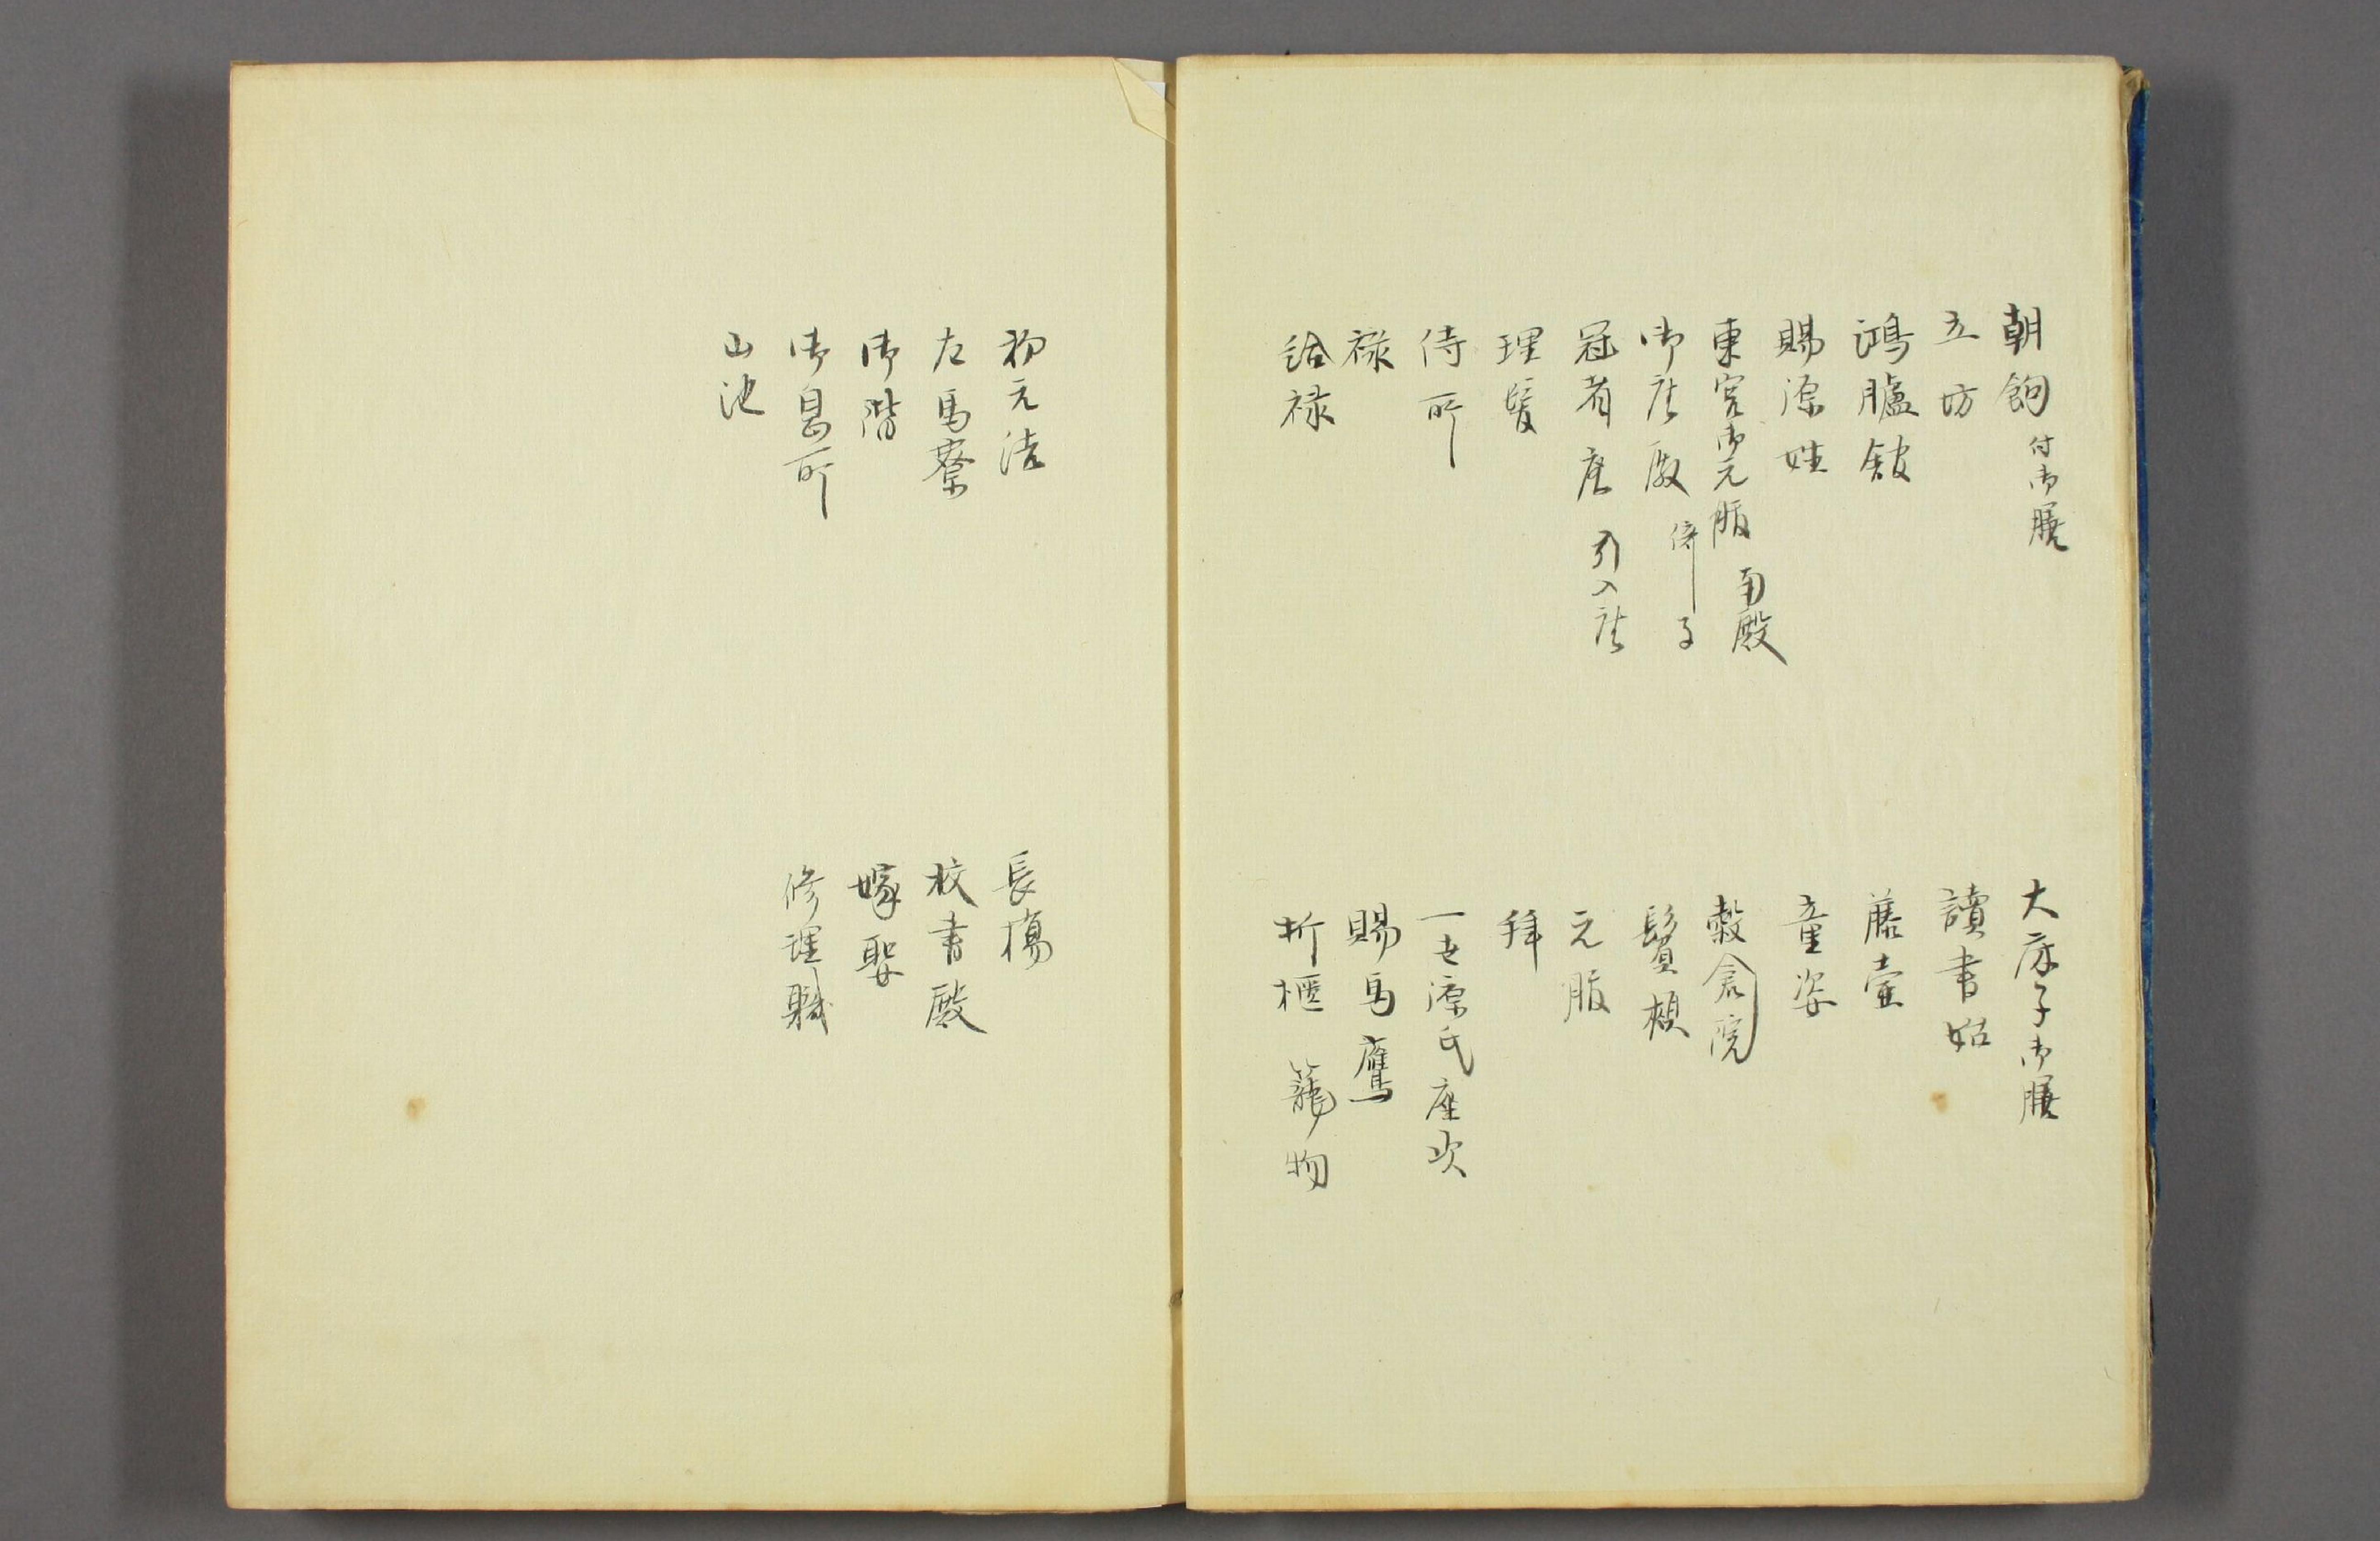 朝餉 付御膳
大床子御膳
立坊
讀書始
鴻臚舘
藤壷
賜源姓
童姿
東宮御元服 南殿
穀倉院
御座殿 倚子
鬢頬
冠者座 引入座
元服
理髪
拝
侍所
一世源氏座次
禄
賜馬鷹
給禄
折櫃 籠物
初元結
長橋
左馬寮
校書殿
御階
嫁娶
御息所
修理職
山池